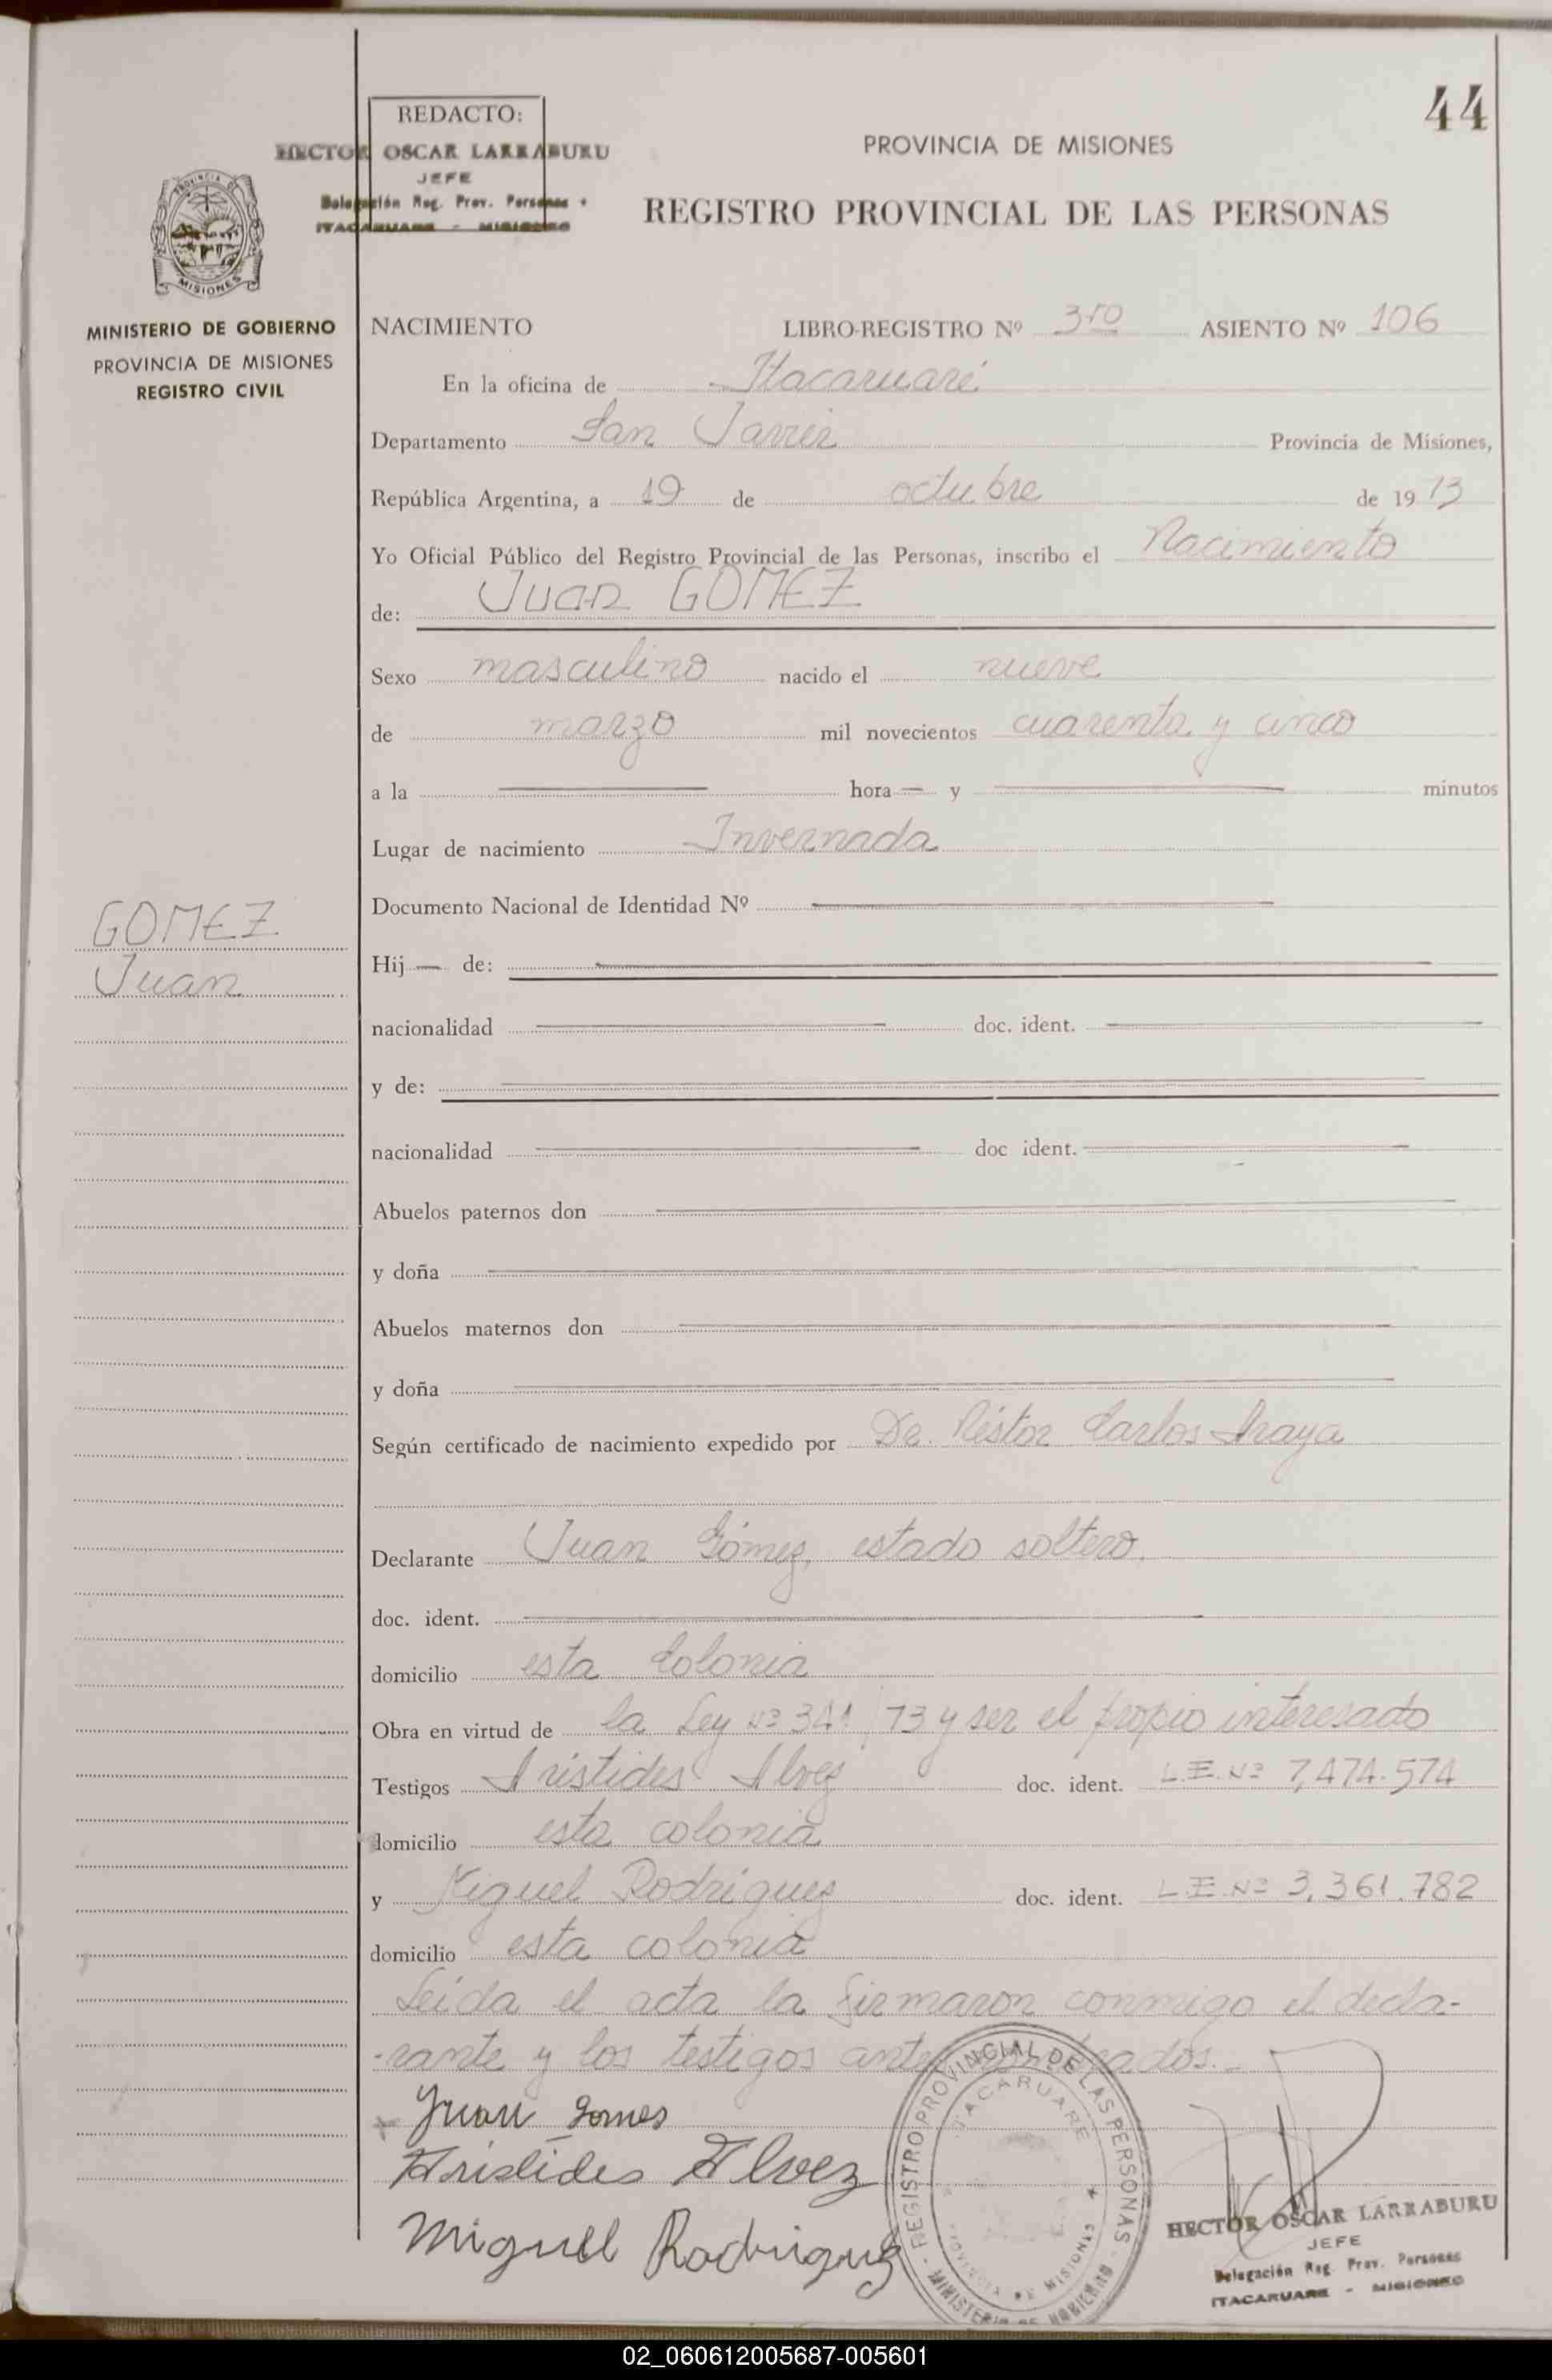 44
REDACTO:
HECTOR OSCAR LARRABURU
JEFE
Delegación Reg. Prov. Personas
ITACARUARE - MISIONES
PROVINCIA DE MISIONES
REGISTRO PROVINCIAL DE LAS PERSONAS
PROVINCIA DE
MISIONES
MINISTERIO DE GOBIERNO
PROVINCIA DE MISIONES
REGISTRO CIVIL
GOMEZ
Juan
NACIMIENTO LIBRO-REGISTRO Nº 3ro ASIENTO Nº 106
En la oficina de Itacaruaré
Departamento San Javier Provincia de Misiones,
República Argentina, a 19 de octubre de 1973
Yo Oficial Público del Registro Provincial de las Personas, inscribo el Nacimiento
de: Juan GOMEZ
Sexo masculino nacido el nueve
de marzo mil novecientos cuarenta y cinco
a la — hora — y — minutos
Lugar de nacimiento Invernada
Documento Nacional de Identidad Nº —
Hij — de: —
nacionalidad — doc. ident. —
y de: —
nacionalidad — doc ident. —
Abuelos paternos don —
y doña —
Abuelos maternos don —
y doña —
Según certificado de nacimiento expedido por Dr. Néstor Carlos Araya
Declarante Juan Gómez, estado soltero.
doc. ident. —
domicilio esta Colonia
Obra en virtud de la Ley Nº 341/73 y ser el propio interesado
Testigos Arístides Alvez doc. ident. L.E. Nº 7,474.574
domicilio esta colonia
y Miguel Rodriguez doc. ident. L.E. Nº 3,361.782
domicilio esta colonia
Leída el acta la firmaron conmigo el decla-
-rante y los testigos ante
Juan Gomes
Aristides Alvez
Miguel Rodriguez
REGISTRO PROVINCIAL DE LAS PERSONAS - MINISTERIO DE GOBIERNO -
ITACARUARE
PROVINCIA DE MISIONES
HECTOR OSCAR LARRABURU
JEFE
Delegación Reg. Prov. Personas
ITACARUARE - MISIONES
02_060612005687-005601